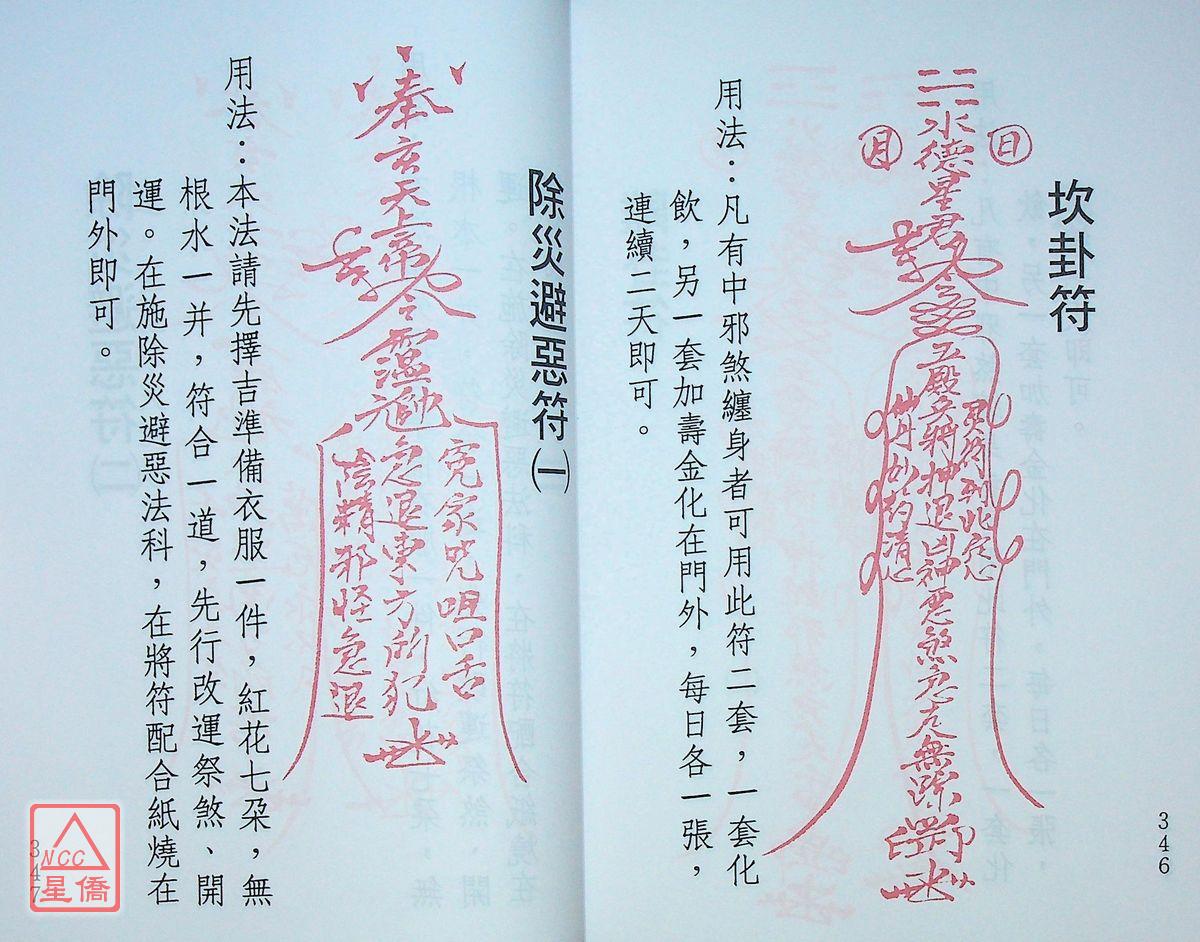 坎卦符
日
月
水德星君
五殿
退凶神惡煞急走無踪
用法：凡有中邪煞纏身者可用此符二套，一套化
飲，另一套加壽金化在門外，每日各一張，
連續二天即可。
346
除災避惡符㈠
奉玄天上帝
令
冤家咒咀口舌
急退東方所犯
陰精邪怪急退
用法：本法請先擇吉準備衣服一件，紅花七朶，無
根水一并，符合一道，先行改運祭煞、開
運。在施除災避惡法科，在將符配合紙燒在
門外即可。
347
NCC
星僑